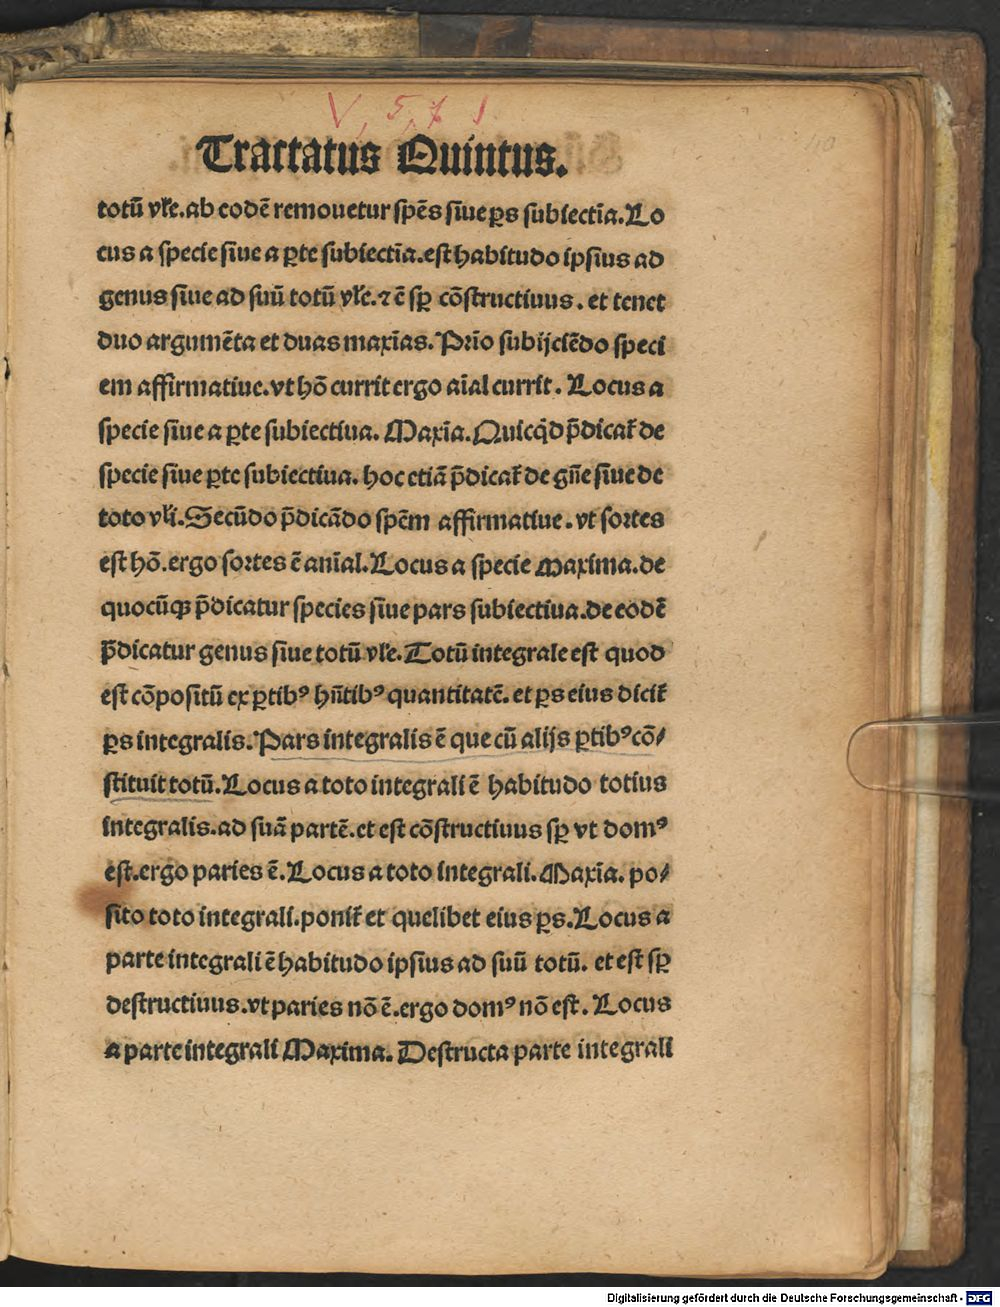 V, 5, 7
Tractatus Quintus.
totū vłe. ab eodē remouetur spēs siue ꝑs subiectīa. Lo
cus a specie siue a ꝑte subiectīa. est habitudo ipsius ad
genus siue ad suū totū vłe. ⁊ ē sꝑ cōstructiuus. et tenet
duo argumēta et duas maxīas. Prīo subijciēdo speci
em affirmatiue. vt hō currit ergo aīal currit. Locus a
specie siue a ꝑte subiectiua. Maxīa. Quicq̇d p̄dicat̄ de
specie siue ꝑte subiectiua. hoc etiā p̄dicat̄ de gn̄e siue de
toto vłi. Secūdo p̄dicādo spēm affirmatiue. vt sortes
est hō. ergo sortes ē anīal. Locus a specie Maxima. de
quocūqꝫ p̄dicatur species siue pars subiectiua. de eodē
p̄dicatur genus siue totū vłe. Totū integrale est quod
est cōpositū ex ꝑtibꝰ hn̄tibꝰ quantitatē. et ꝑs eius dicit̄
ꝑs integralis. Pars integralis ē que cū alijs ꝑtibꝰ cō⸗
stituit totū. Locus a toto integrali ē habitudo totius
integralis. ad suā partē. et est cōstructiuus sꝑ vt domꝰ
est. ergo paries ē. Locus a toto integrali. Maxīa. po⸗
sito toto integrali. ponit̄ et quelibet eius ꝑs. Locus a
parte integrali ē habitudo ipsius ad suū totū. et est sꝑ
destructiuus. vt paries nō ē. ergo domꝰ nō est. Locus
a parte integrali Maxima. Destructa parte integrali
Digitalisierung gefördert durch die Deutsche Forschungsgemeinschaft - DFG